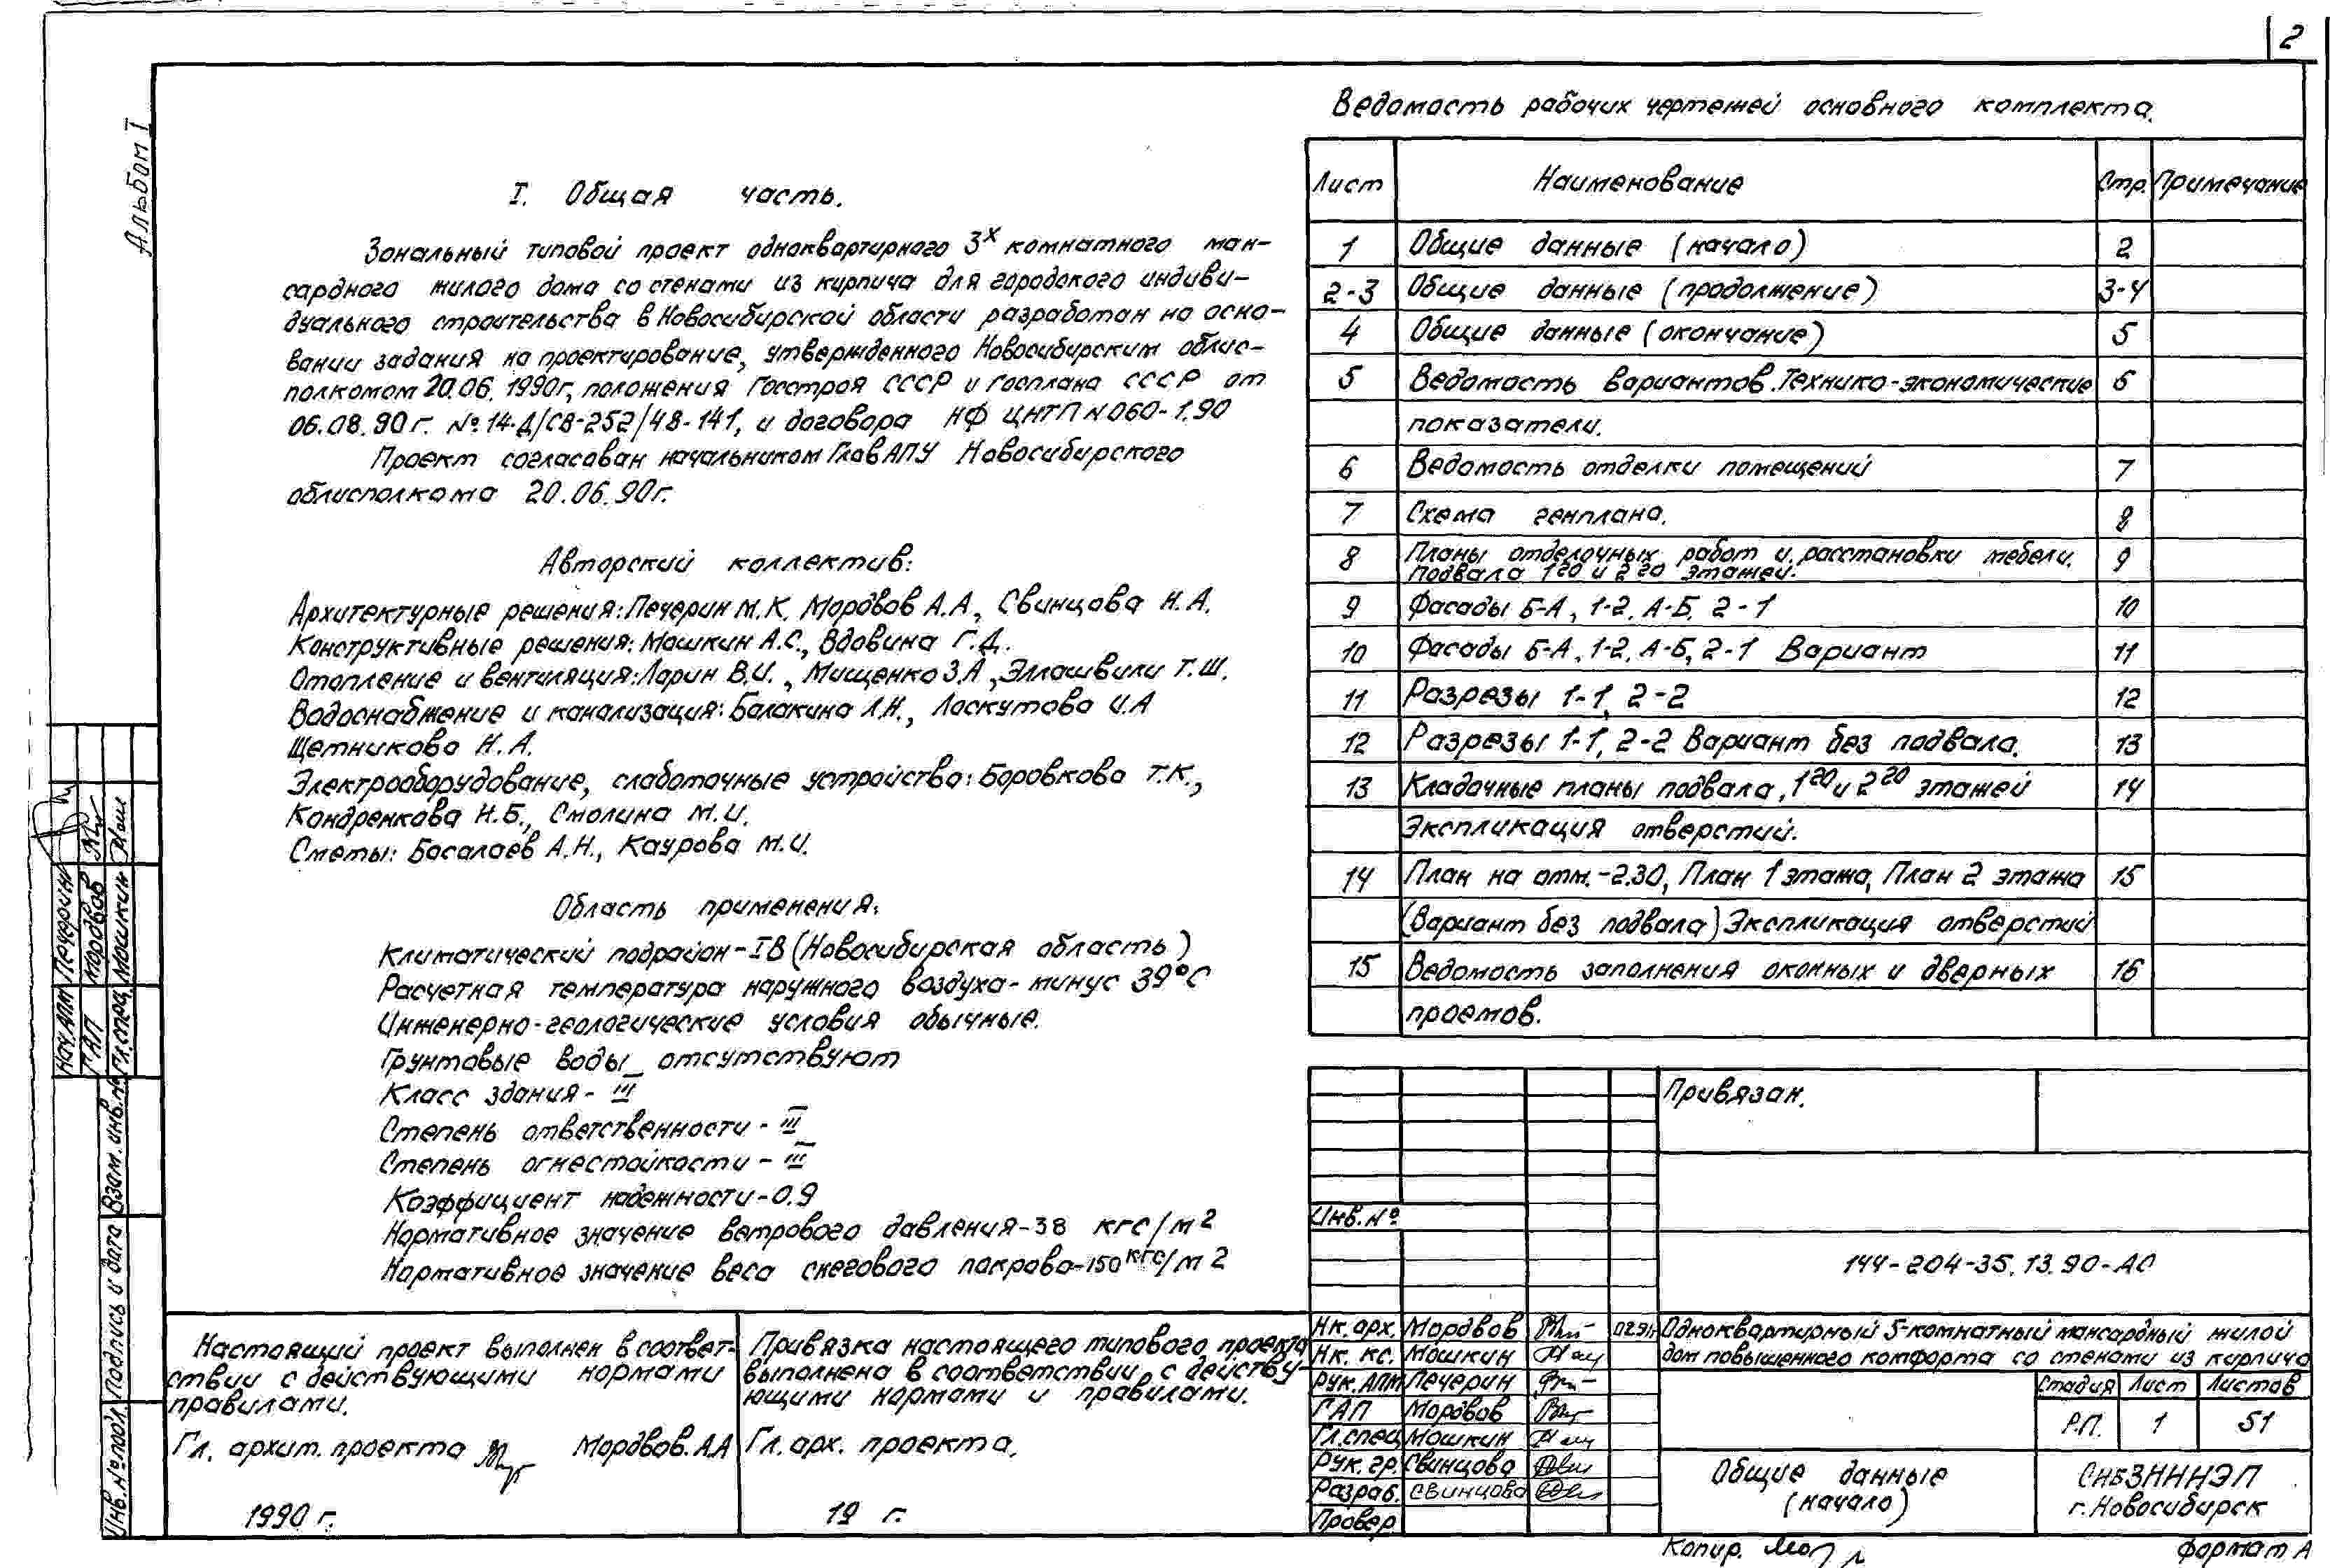 2
Альбом I
I. Общая часть.
Зональный типовой проект одноквартирного 3х комнатного ман-
сардного жилого дома со стенами из кирпича для городского индиви-
дуального строительства в Новосибирской области разработан на осно-
вании задания на проектирование, утвержденного Новосибирским облис-
полкомом 20.06. 1990г, положения Госстроя СССР и Госплана СССР от
06.08.90г. №14-Д/СВ-252/48-141, и договора НФ ЦНТП N060-1.90
Проект согласован начальником ГлавАПУ Новосибирского
облисполкома 20.06.90г.
Авторский коллектив:
Архитектурные решения: Печерин М.К. Мордвов А.А., Свинцова Н.А.
Конструктивные решения: Мошкин А.С., Вдовина Г.Д.
Отопление и вентиляция: Ларин В.И., Мищенко З.А., Эллашвили Т.Ш.
Водоснабжение и канализация: Балакина Л.Н., Лоскутова И.А
Щетникова Н.А.
Электрооборудование, слаботочные устройства: Боровкова Т.К.,
Кондренкова Н.Б., Смолина М.И.
Сметы: Басалаев А.Н., Каурова М.И.
Область применения:
Климатический подрайон - IВ (Новосибирская область)
Расчетная температура наружного воздуха - минус 39°С
Инженерно-геологические условия обычные.
Грунтовые воды отсутствуют
Класс здания - III
Степень ответственности - III
Степень огнестойкости - III
Коэффициент надежности - 0.9
Нормативное значение ветрового давления - 38 кгс/м2
Нормативное значение веса снегового покрова - 150 кгс/м2
Ведомость рабочих чертежей основного комплекта.
Лист Наименование Стр. Примечание
1 Общие данные (начало) 2
2-3 Общие данные (продолжение) 3-4
4 Общие данные (окончание) 5
5 Ведомость вариантов. Технико-экономические 6
показатели.
6 Ведомость отделки помещений 7
7 Схема генплана. 8
8 Планы отделочных работ и расстановки мебели. 9
Подвала 1го и 2го этажей.
9 Фасады Б-А, 1-2, А-Б, 2-1 10
10 Фасады Б-А, 1-2, А-Б, 2-1 Вариант 11
11 Разрезы 1-1, 2-2 12
12 Разрезы 1-1, 2-2 Вариант без подвала. 13
13 Кладочные планы подвала, 1го и 2го этажей 14
Экспликация отверстий.
14 План на отм. -2.30, План 1 этажа, План 2 этажа 15
(Вариант без подвала) Экспликация отверстий
15 Ведомость заполнения оконных и дверных 16
проемов.
Нач. АПМ Печерин
ГАП Мордвов
Гл. спец. Мошкин
Взам. инв. №
Подпись и дата
Инв. № подл.
Настоящий проект выполнен в соответ-
ствии с действующими нормами
правилами.
Гл. архит. проекта Мордвов. А.А
1990 г.
Привязка настоящего типового проекта
выполнена в соответствии с действу-
ющими нормами и правилами.
Гл. арх. проекта.
19 г.
Привязан.
Инв. №
144-204-35.13.90-АС
Нк. арх. Мордвов 02.91г
Нк. кс. Мошкин
Рук. АПМ Печерин
ГАП Мордвов
Гл. спец Мошкин
Рук. гр. Свинцова
Разраб. Свинцова
Провер
Одноквартирный 5-комнатный мансардный жилой
дом повышенного комфорта со стенами из кирпича
Стадия Лист Листов
Р.П. 1 51
Общие данные
(начало)
СибЗНИИЭП
г. Новосибирск
Копир.
Формат А